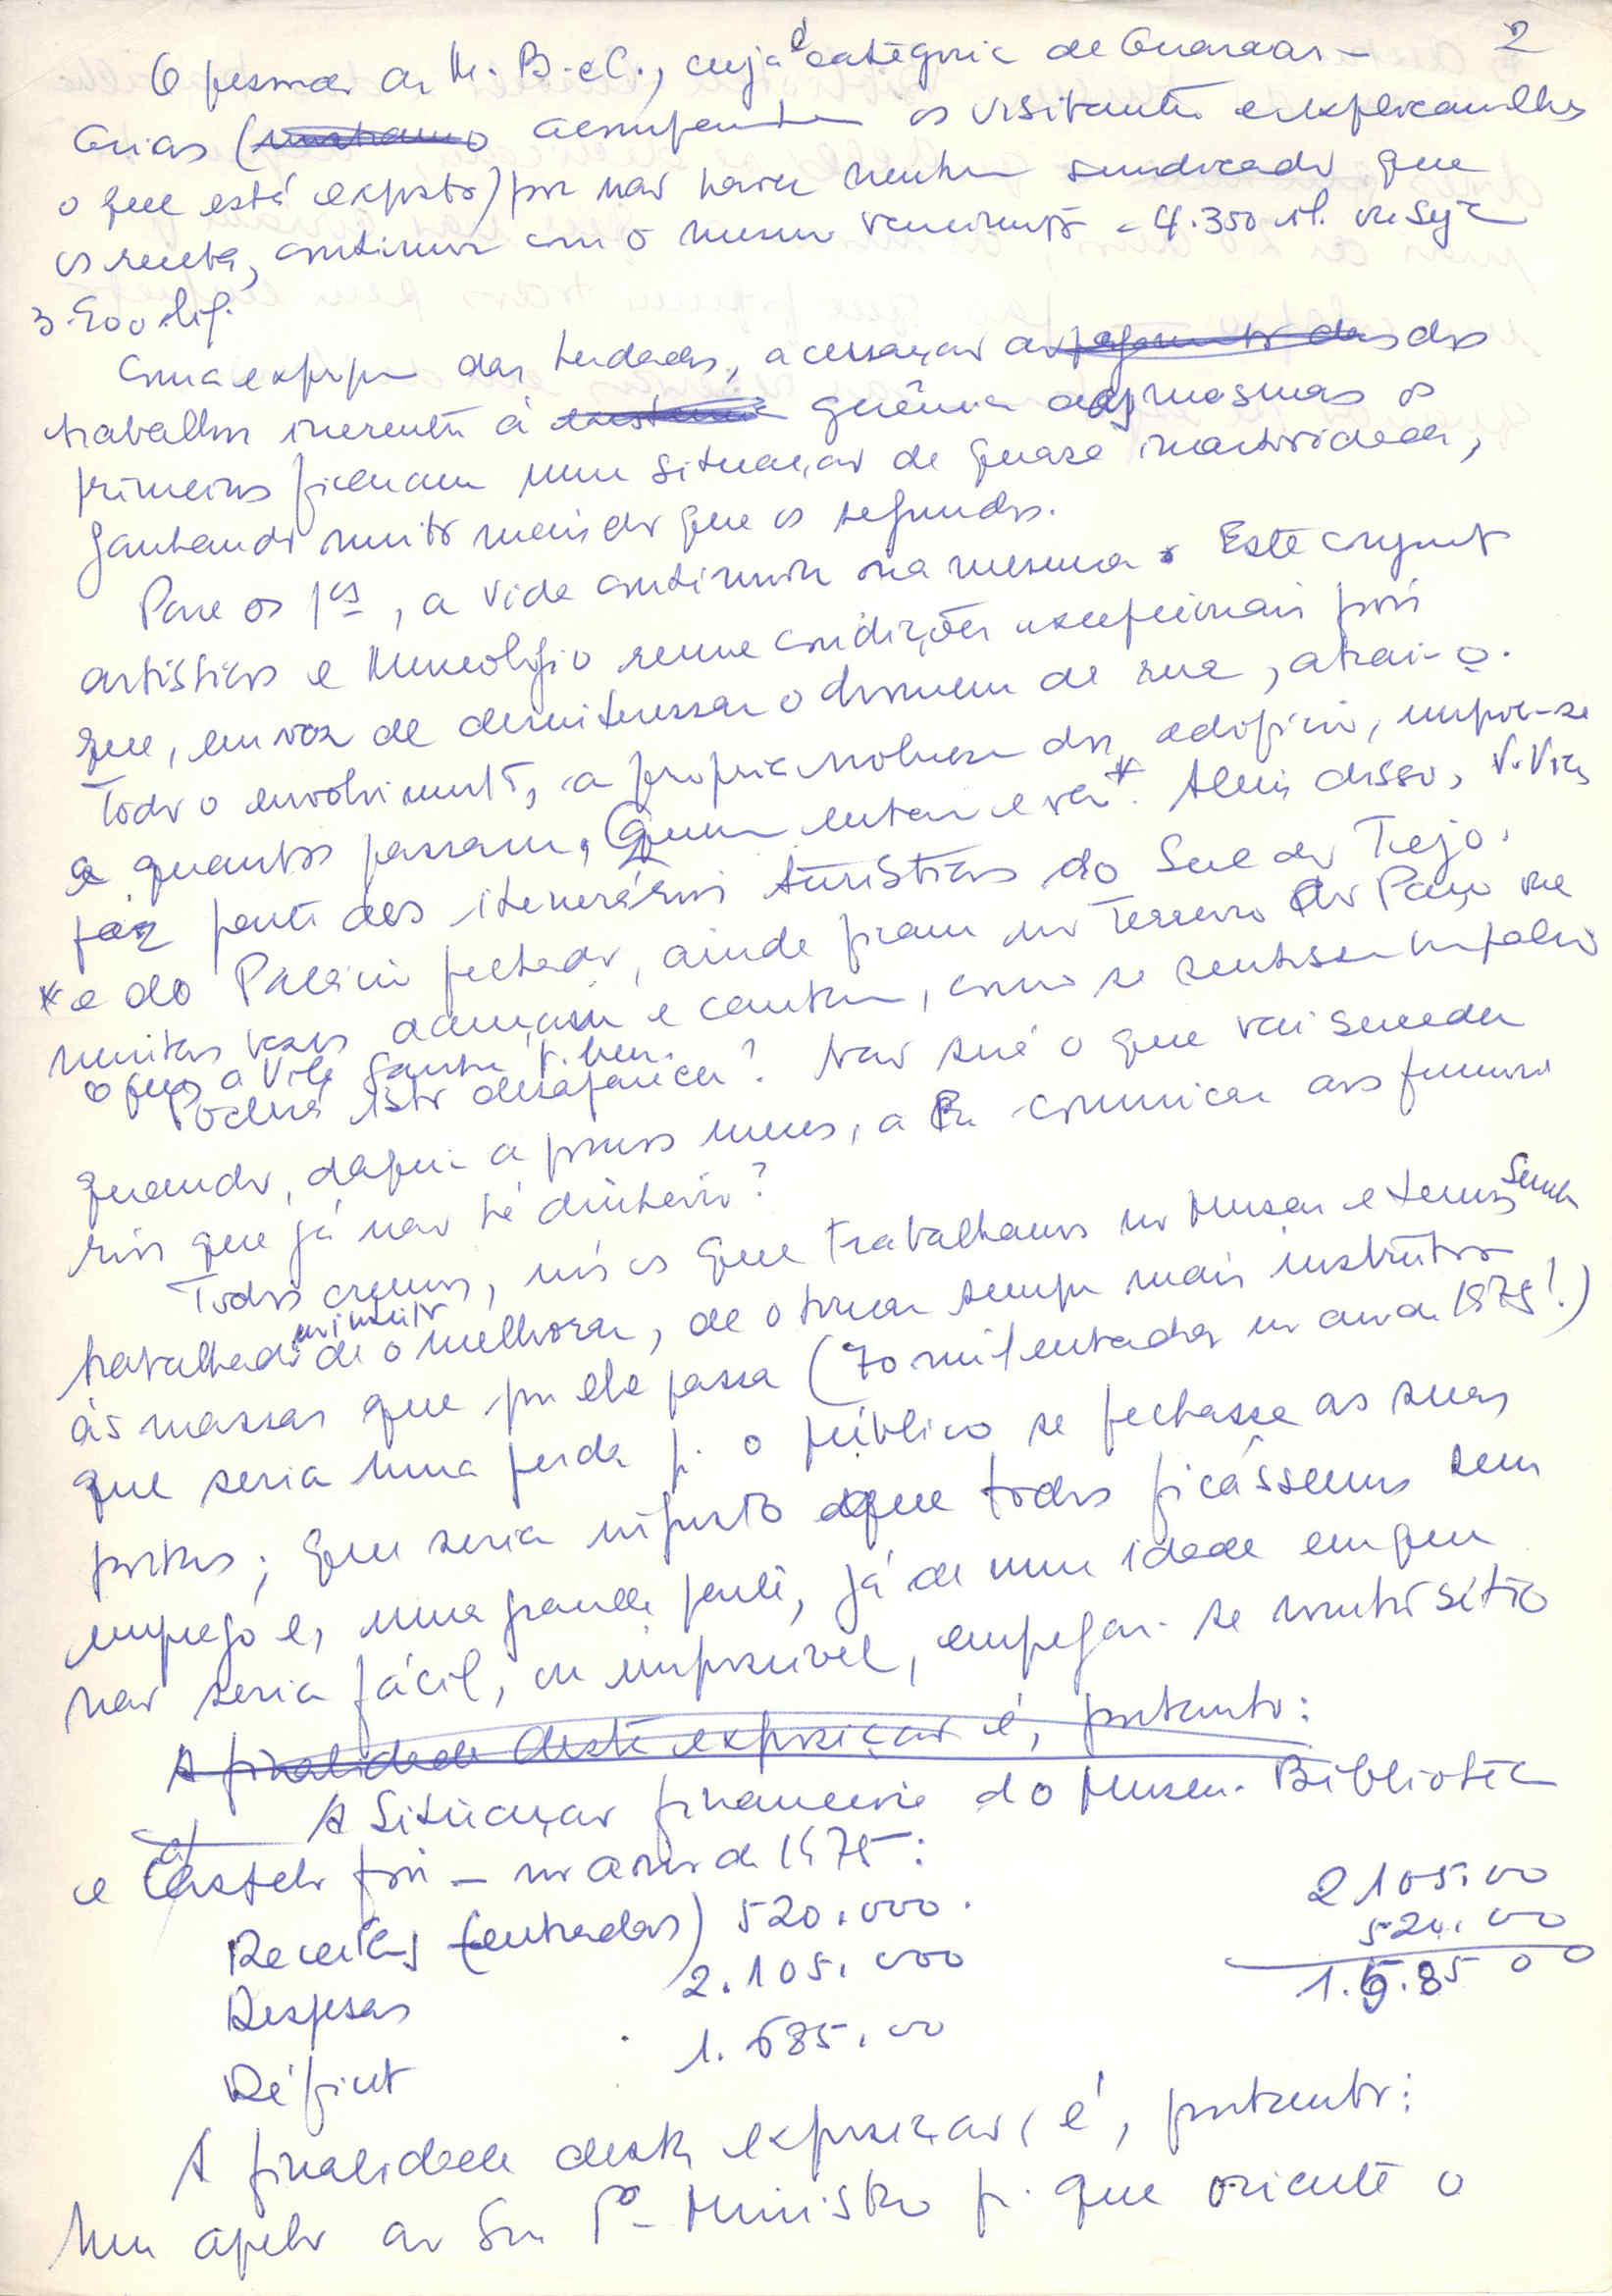 2
O pessoal do M. B. e C., cuja categoria é de Guardas-
Guias (acompanham os visitantes e explicam-lhes
o que está exposto) por não haver nenhum sindicado que
os receba, continua com o mesmo vencimento - 4.350 il. ou seja
3.900 liq.
Com a expropr das herdades, a cessação dos
trabalhos inerentes à gerência das mesmas os
primeiros ficaram numa situação de quase inactividade,
ganhando muito mais do que os segundos.
Para os 1os, a vida continuou na mesma. Este conjunto
artístico e Museológico reune condições excepcionais pois
que, em vez de desinteressar o homem de rua, atrai-o.
Todo o envolvimento, a própria nobreza dos edifícios, impõe-se
a quantos passam, Quem entra e vê*. Além disso, V. Viçosa
faz parte dos itenerários turísticos do Sul do Tejo.
* e do Palácio fechado, ainda ficam no Terreiro do Paço ou
muitas vezes dançam e cantam, como se sentissem
o que a Vila ganha t. bem.
Poderá isto desaparecer? Não será o que vai suceder
quando, daqui a poucos meses, a comunicar aos funcioná
rios que já não há dinheiro?
Todos cremos, nós os que trabalhamos no Museu e temos sempre
trabalhado no intuito de o melhorar, de o tornar sempre mais instrutivo
às massas que por ele passa (70 mil entradas no ano de 1975!)
que seria uma perda p. o público se fechasse as suas
portas; que seria injusto que todos ficássemos sem
emprego e, uma grande parte, já de uma idade em que
não seria fácil, ou impossível, empregar-se noutro sítio
A finalidade desta exposição é, portanto:
A Situação financeira do Museu-Biblioteca
e Castelo foi - no ano de 1975:
Receitas (entradas) 520.000.
Despesas 2.105.000
Déficit 1.685.00
2105.00
520.00
1.585 00
A finalidade desta exposição, é, portanto:
Um apelo ao Sr. 1º Ministro p. que oriente o